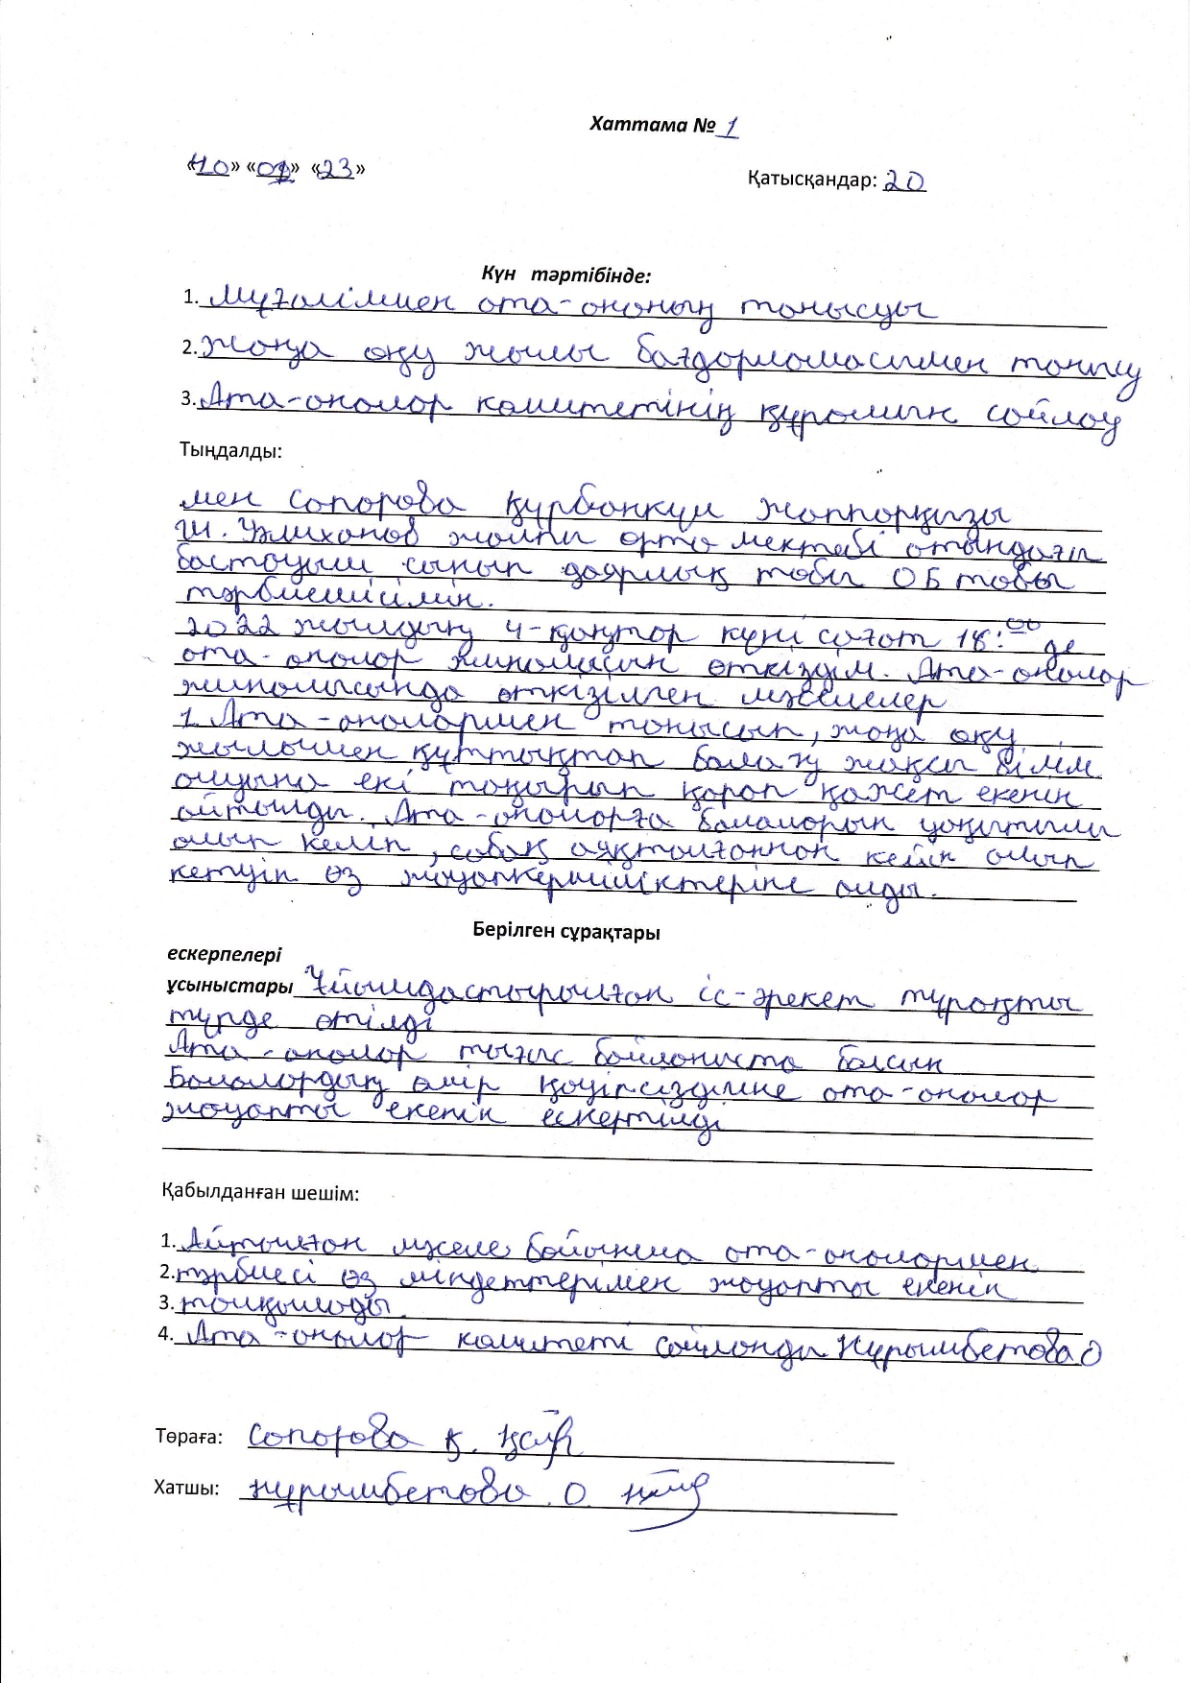 Хаттама № 1
«10» «01» «23»
Қатысқандар: 20
Күн тәртібінде:
1. Мұғаліммен ата-ананың танысуы
2. Жаңа оқу жылы бағдарламасымен танысу
3. Ата-аналар комитетінің құрамын сайлау
Тыңдалды:
мен Сапарова Құрбанкүл Жаппарқызы
Ш. Уәлиханов жалпы орта мектебі атындағы
бастауыш сынып даярлық тобы ОБ тобы
тәрбиешісімін.
2022 жылдың 4-қаңтар күні сағат 18:00 де
ата-аналар жиналысын өткіздім. Ата-аналар
жиналысында өткізілген мәселелер
1. Ата-аналармен танысып, жаңа оқу
жылымен құттықтап баланың жақсы білім
алуына екі тақырып қарап қажет екенін
айтылды. Ата-аналарға балаларын уақытылы
алып келіп, сабақ аяқталғаннан кейін алып
кетуін өз жауапкершіліктеріне алды.
Берілген сұрақтары
ескерпелері
ұсыныстары Ұйымдастырылған іс-әрекет тұрақты
түрде өтілді
Ата-аналар тығыс байланыста болсын
Балалардың өмір қауіпсіздігіне ата-аналар
жауапты екенін ескертілді
Қабылданған шешім:
1. Айтылған мәселе бойынша ата-аналармен
2. тәрбиесі өз міндеттерімен жауапты екенін
3. талқылады.
4. Ата-аналар комитеті сайланды Нұрымбетова О
Төраға: Сапарова Қ.
Хатшы: Нұрымбетова О